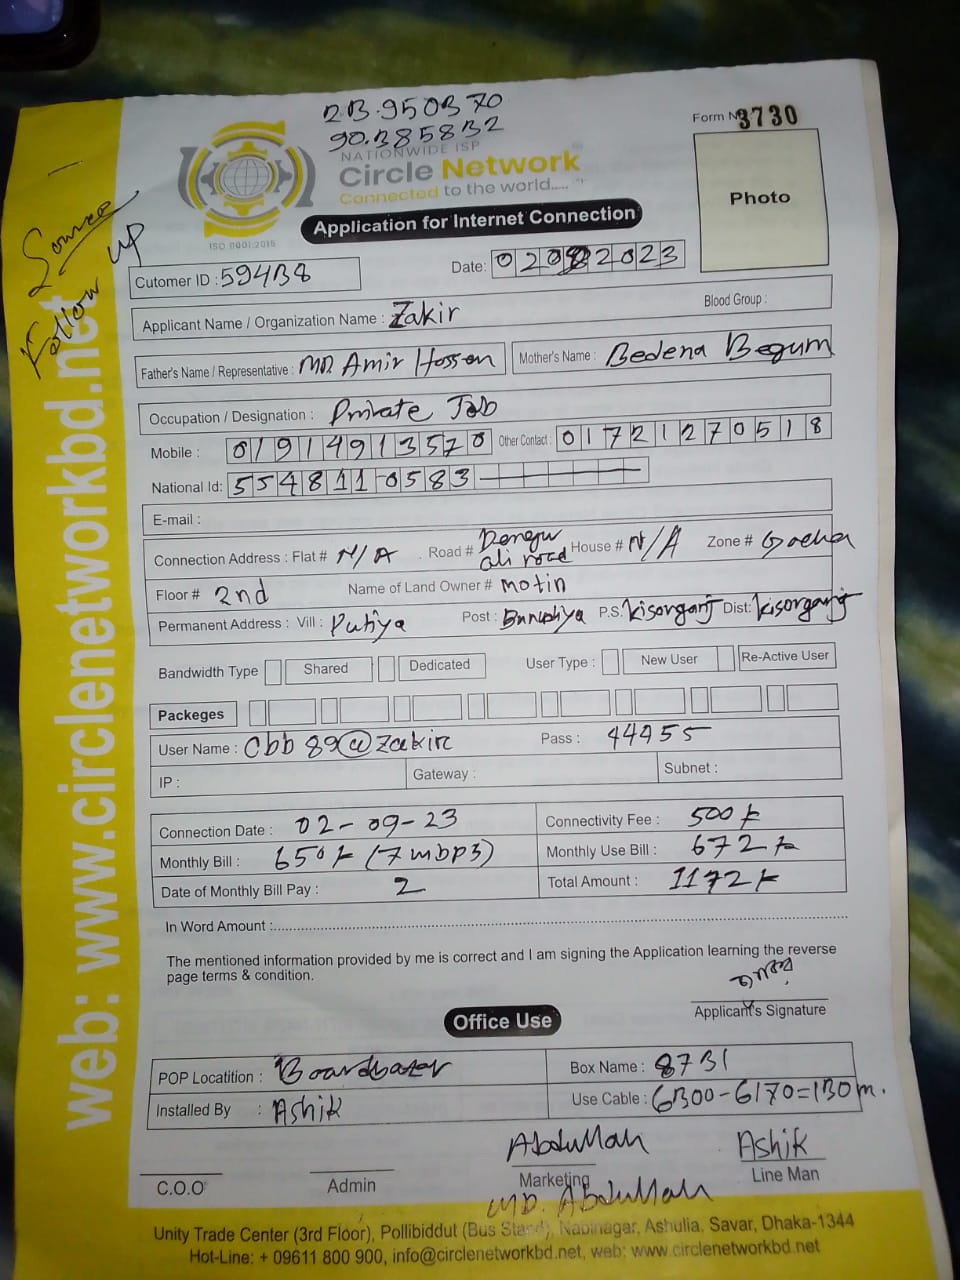 23.950370
90.385832
Form No 3730
NATIONWIDE ISP
Circle Network
Connected to the world.....
ISO 9001:2015
Photo
Application for Internet Connection
Source
Follow up
web: www.circlenetworkbd.net
Cutomer ID : 594138
Date: 02 09 2023
Applicant Name / Organization Name : Zakir
Blood Group :
Father's Name / Representative : MD. Amir Hossen Mother's Name : Bedena Begum
Occupation / Designation : Private Job
Mobile : 01914913570 Other Contact : 01721270518
National Id: 5548110583
E-mail :
Connection Address : Flat # N/A Road # ali road House # N/A Zone # Gacha
Floor # 2nd Name of Land Owner # motin
Permanent Address : Vill : Putiya Post : P.S. Kisorganj Dist: Kisorganj
Bandwidth Type Shared Dedicated User Type : New User Re-Active User
Packeges
User Name : Cbb89@zakir Pass : 44455
IP : Gateway : Subnet :
Connection Date : 02-09-23 Connectivity Fee : 500 tk
Monthly Bill : 650 tk (7 mbps) Monthly Use Bill : 672 tk
Date of Monthly Bill Pay : 2 Total Amount : 1172 tk
In Word Amount :
The mentioned information provided by me is correct and I am signing the Application learning the reverse
page terms & condition.
Applicant's Signature
Office Use
POP Locatition : Boardbazar Box Name : 8731
Installed By : Ashik Use Cable : 6300-6170=130m.
Abdullah Ashik
C.O.O Admin Marketing Line Man
MD. Abdullah
Unity Trade Center (3rd Floor), Pollibiddut (Bus Stand), Nabinagar, Ashulia, Savar, Dhaka-1344
Hot-Line: + 09611 800 900, info@circlenetworkbd.net, web: www.circlenetworkbd.net